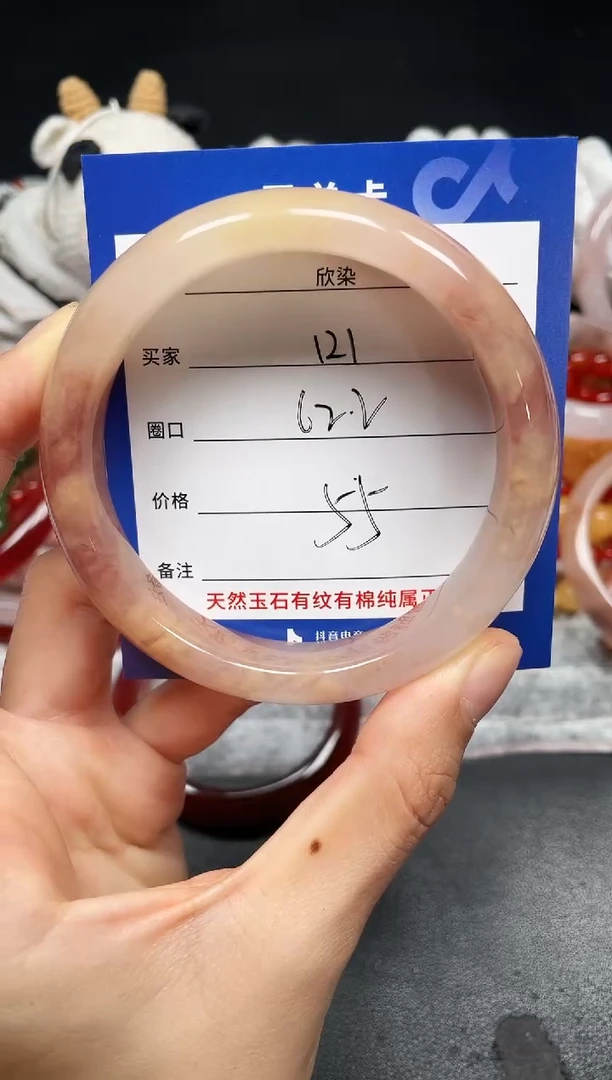 欣染
买家 121
圈口 62.2
价格 55
备注
天然玉石有纹有棉纯属正
抖音电商